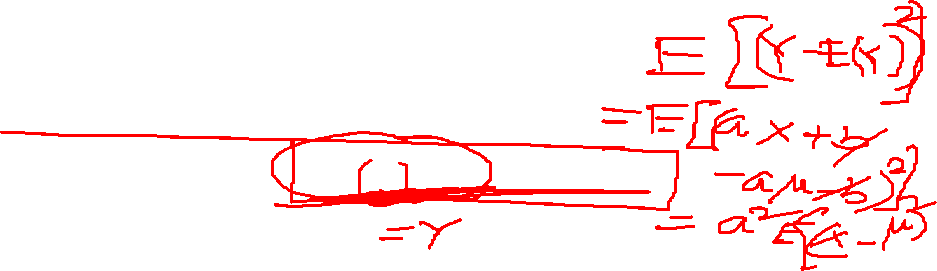 E[(Y-E(Y))^2]
=E[(ax+b
-aμ-b)^2]
=Y
=a^2E[(x-μ)^2]